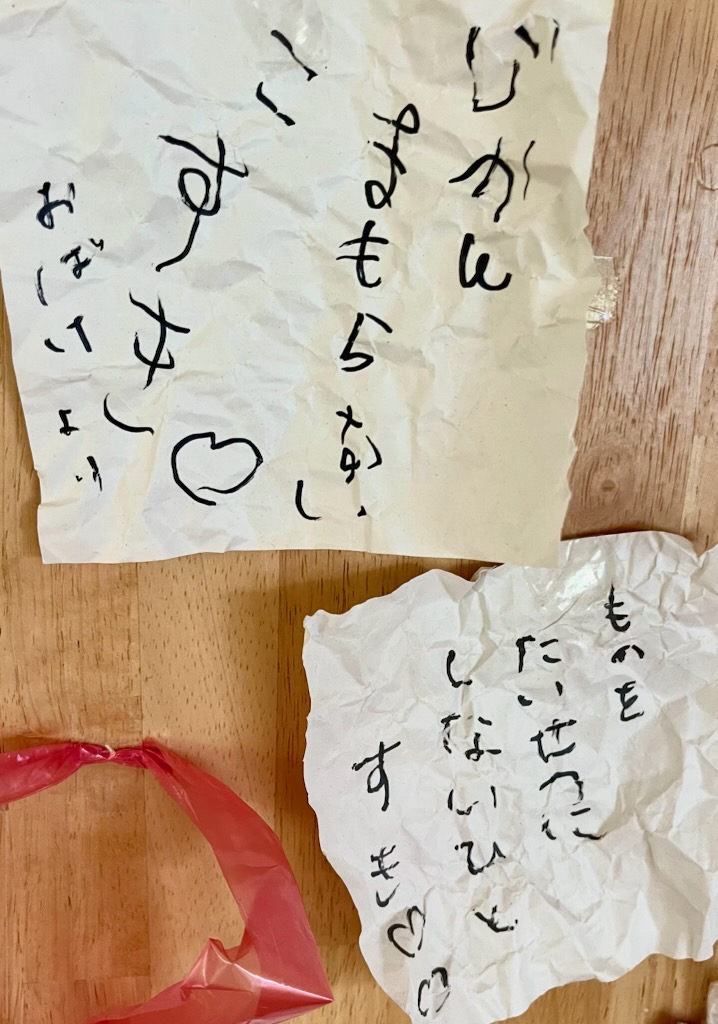 じかん
まもらない
こ すき♡
おばけより
ものを
たいせつに
しないひと
すき♡♡